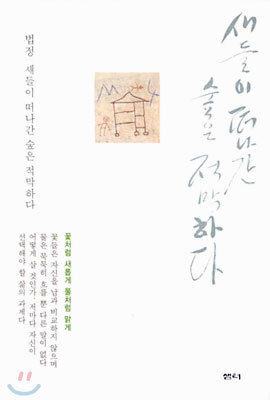 새들이 떠나간
숲은
적막하다
법정 새들이 떠나간 숲은 적막하다
꽃처럼 새롭게 물처럼 맑게
꽃들은 자신을 남과 비교하지 않으며
물은 묵묵히 흐를 뿐 다른 말이 없다
어떻게 살 것인가, 저마다 자신이
선택해야 할 삶의 과제다
샘터